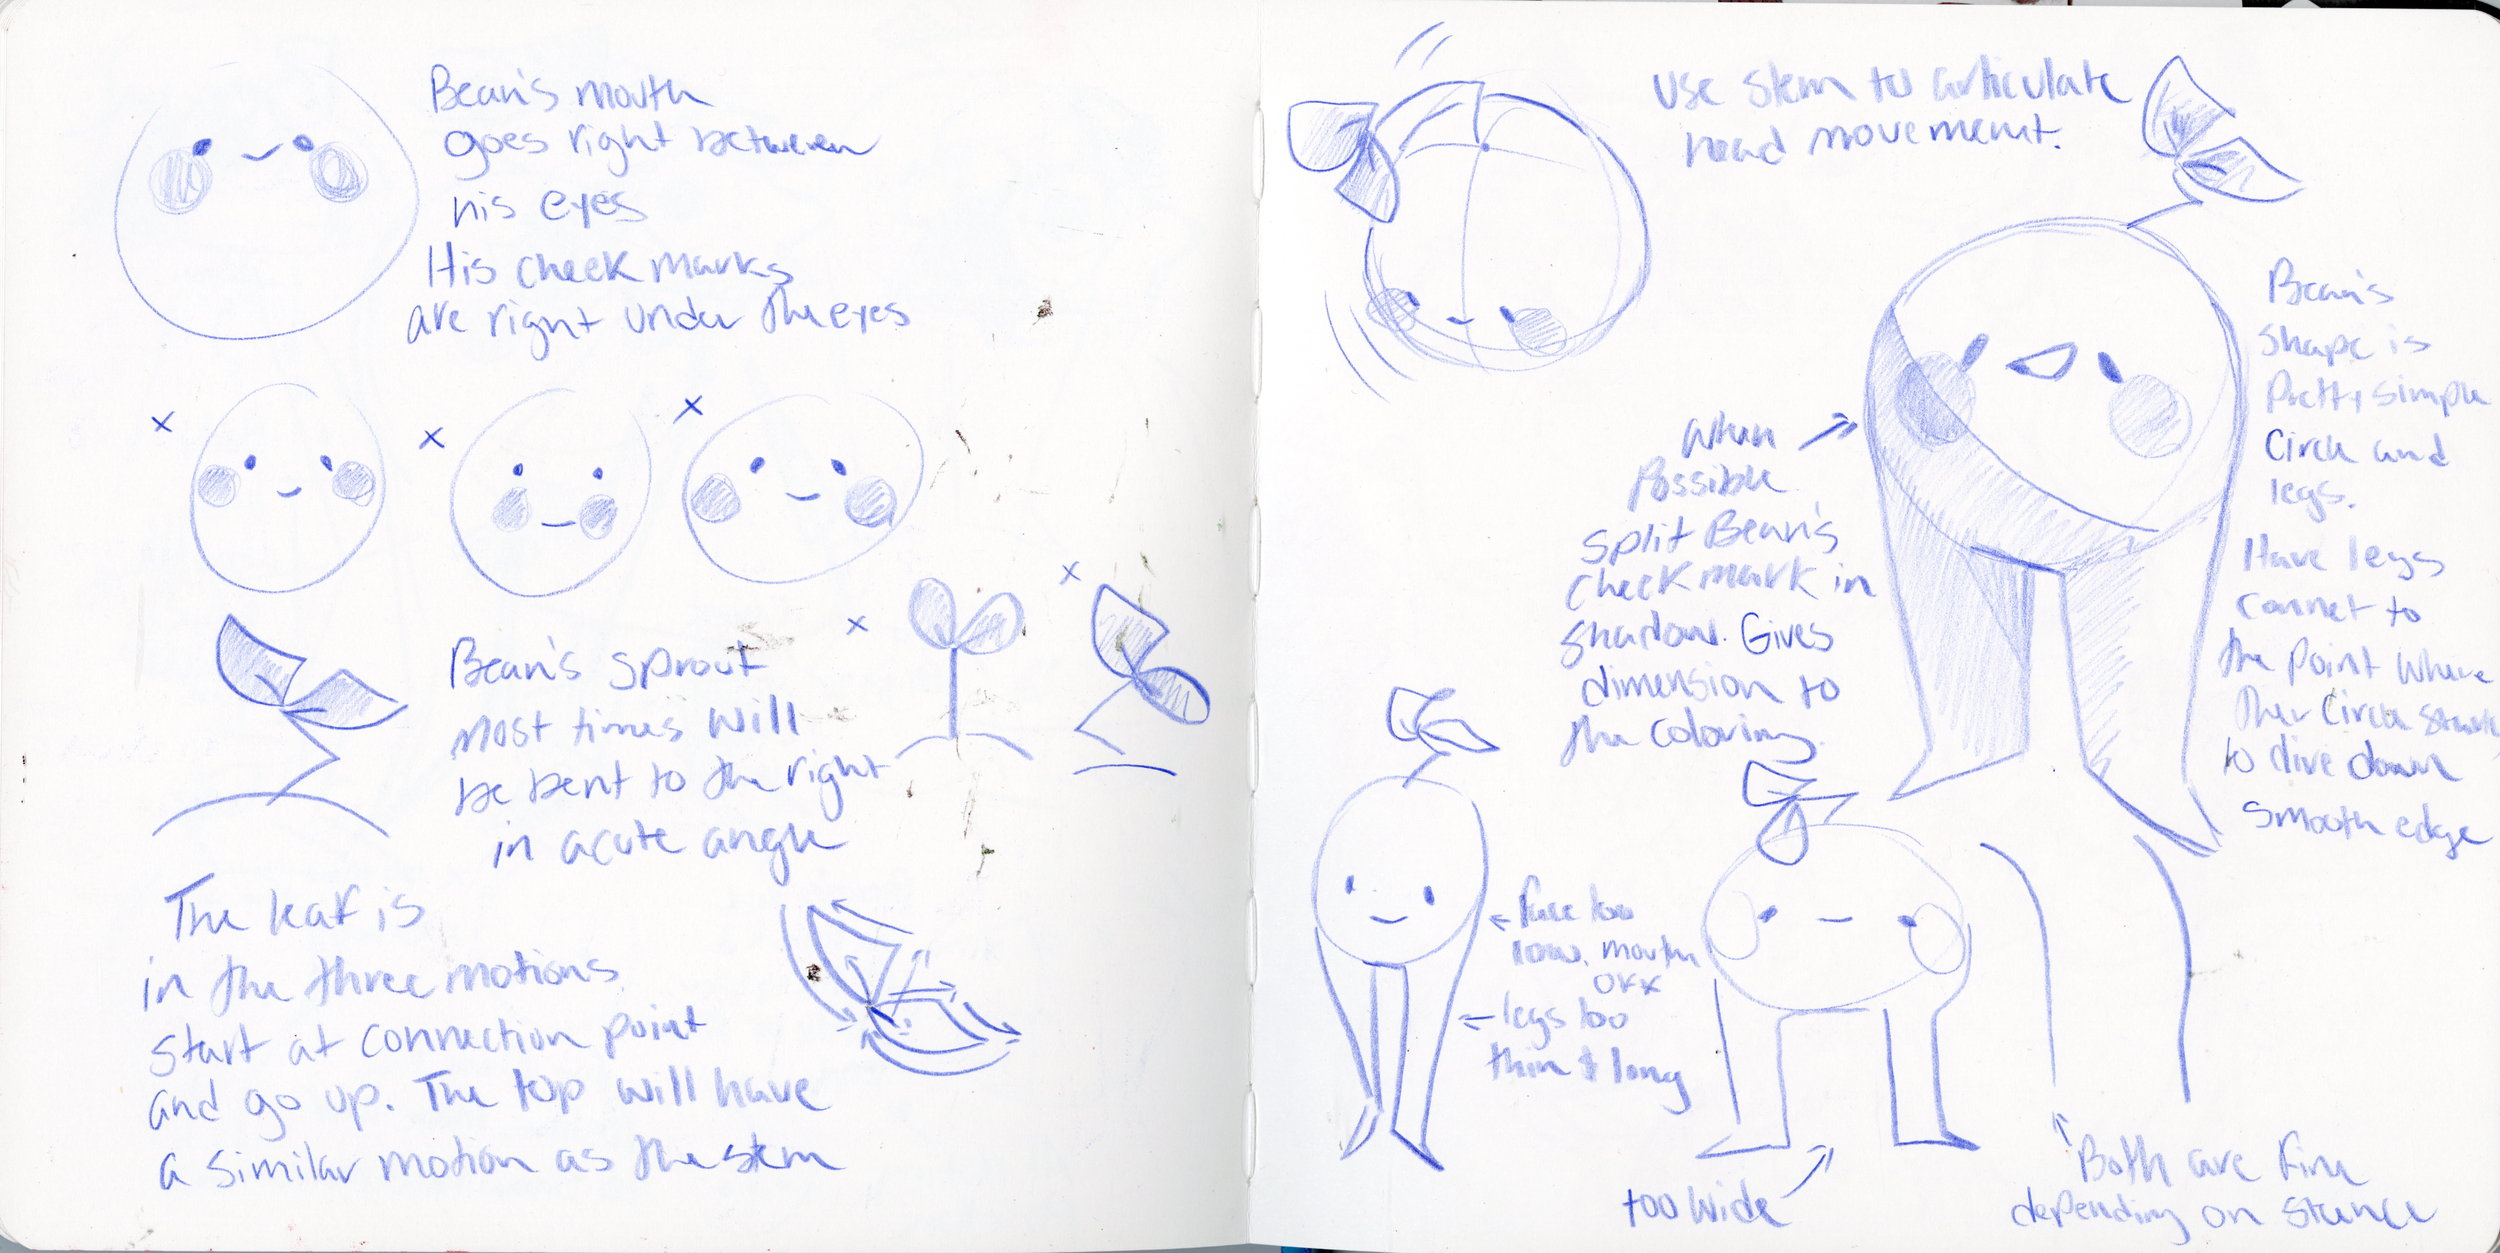 Bean's mouth
goes right between
his eyes
His cheek marks
are right under the eyes
x
x
x
Bean's sprout
most times will
be bent to the right
in acute angle
x
x
The leaf is
in the three motions.
Start at connection point
and go up. The top will have
a similar motion as the stem
Use stem to articulate
head movement.
When
Possible
split Bean's
cheek mark in
shadow. Gives
dimension to
the coloring.
Bean's
shape is
Pretty simple
Circle and
legs.
Have legs
connet to
the point where
the circle starts
to dive down
smooth edge
face too
low. mouth
legs too
thin & long
too wide
Both are fine
depending on stance